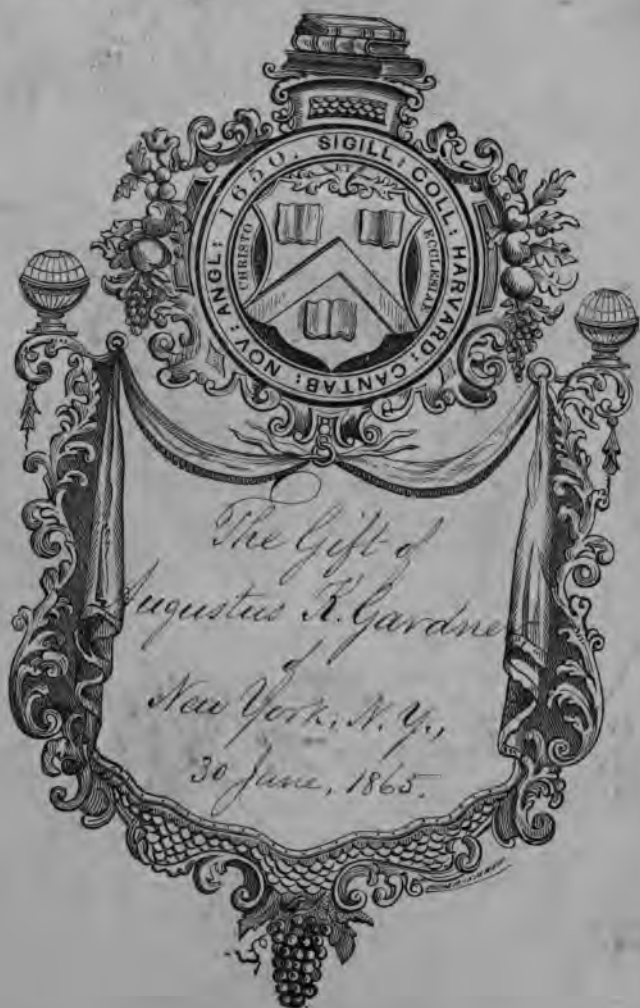 SIGILL: COLL: HARVARD: CANTAB: NOV: ANGL: 1650.
CHRISTO ET ECCLESIAE
The Gift of
Augustus K. Gardner
of
New York, N. Y.,
30 June, 1865.